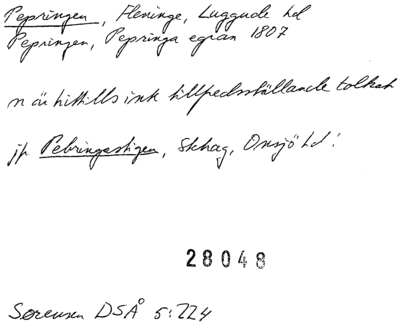 Pepringen, Fleninge, Luggude hd
Pepringen, Pepringa egran 1807
n är hittills ink tillfredsställande tolkat
jfr Pebringastigen, Skhag, Onsjö hd!
28048
Sørensen DSÅ 5:224